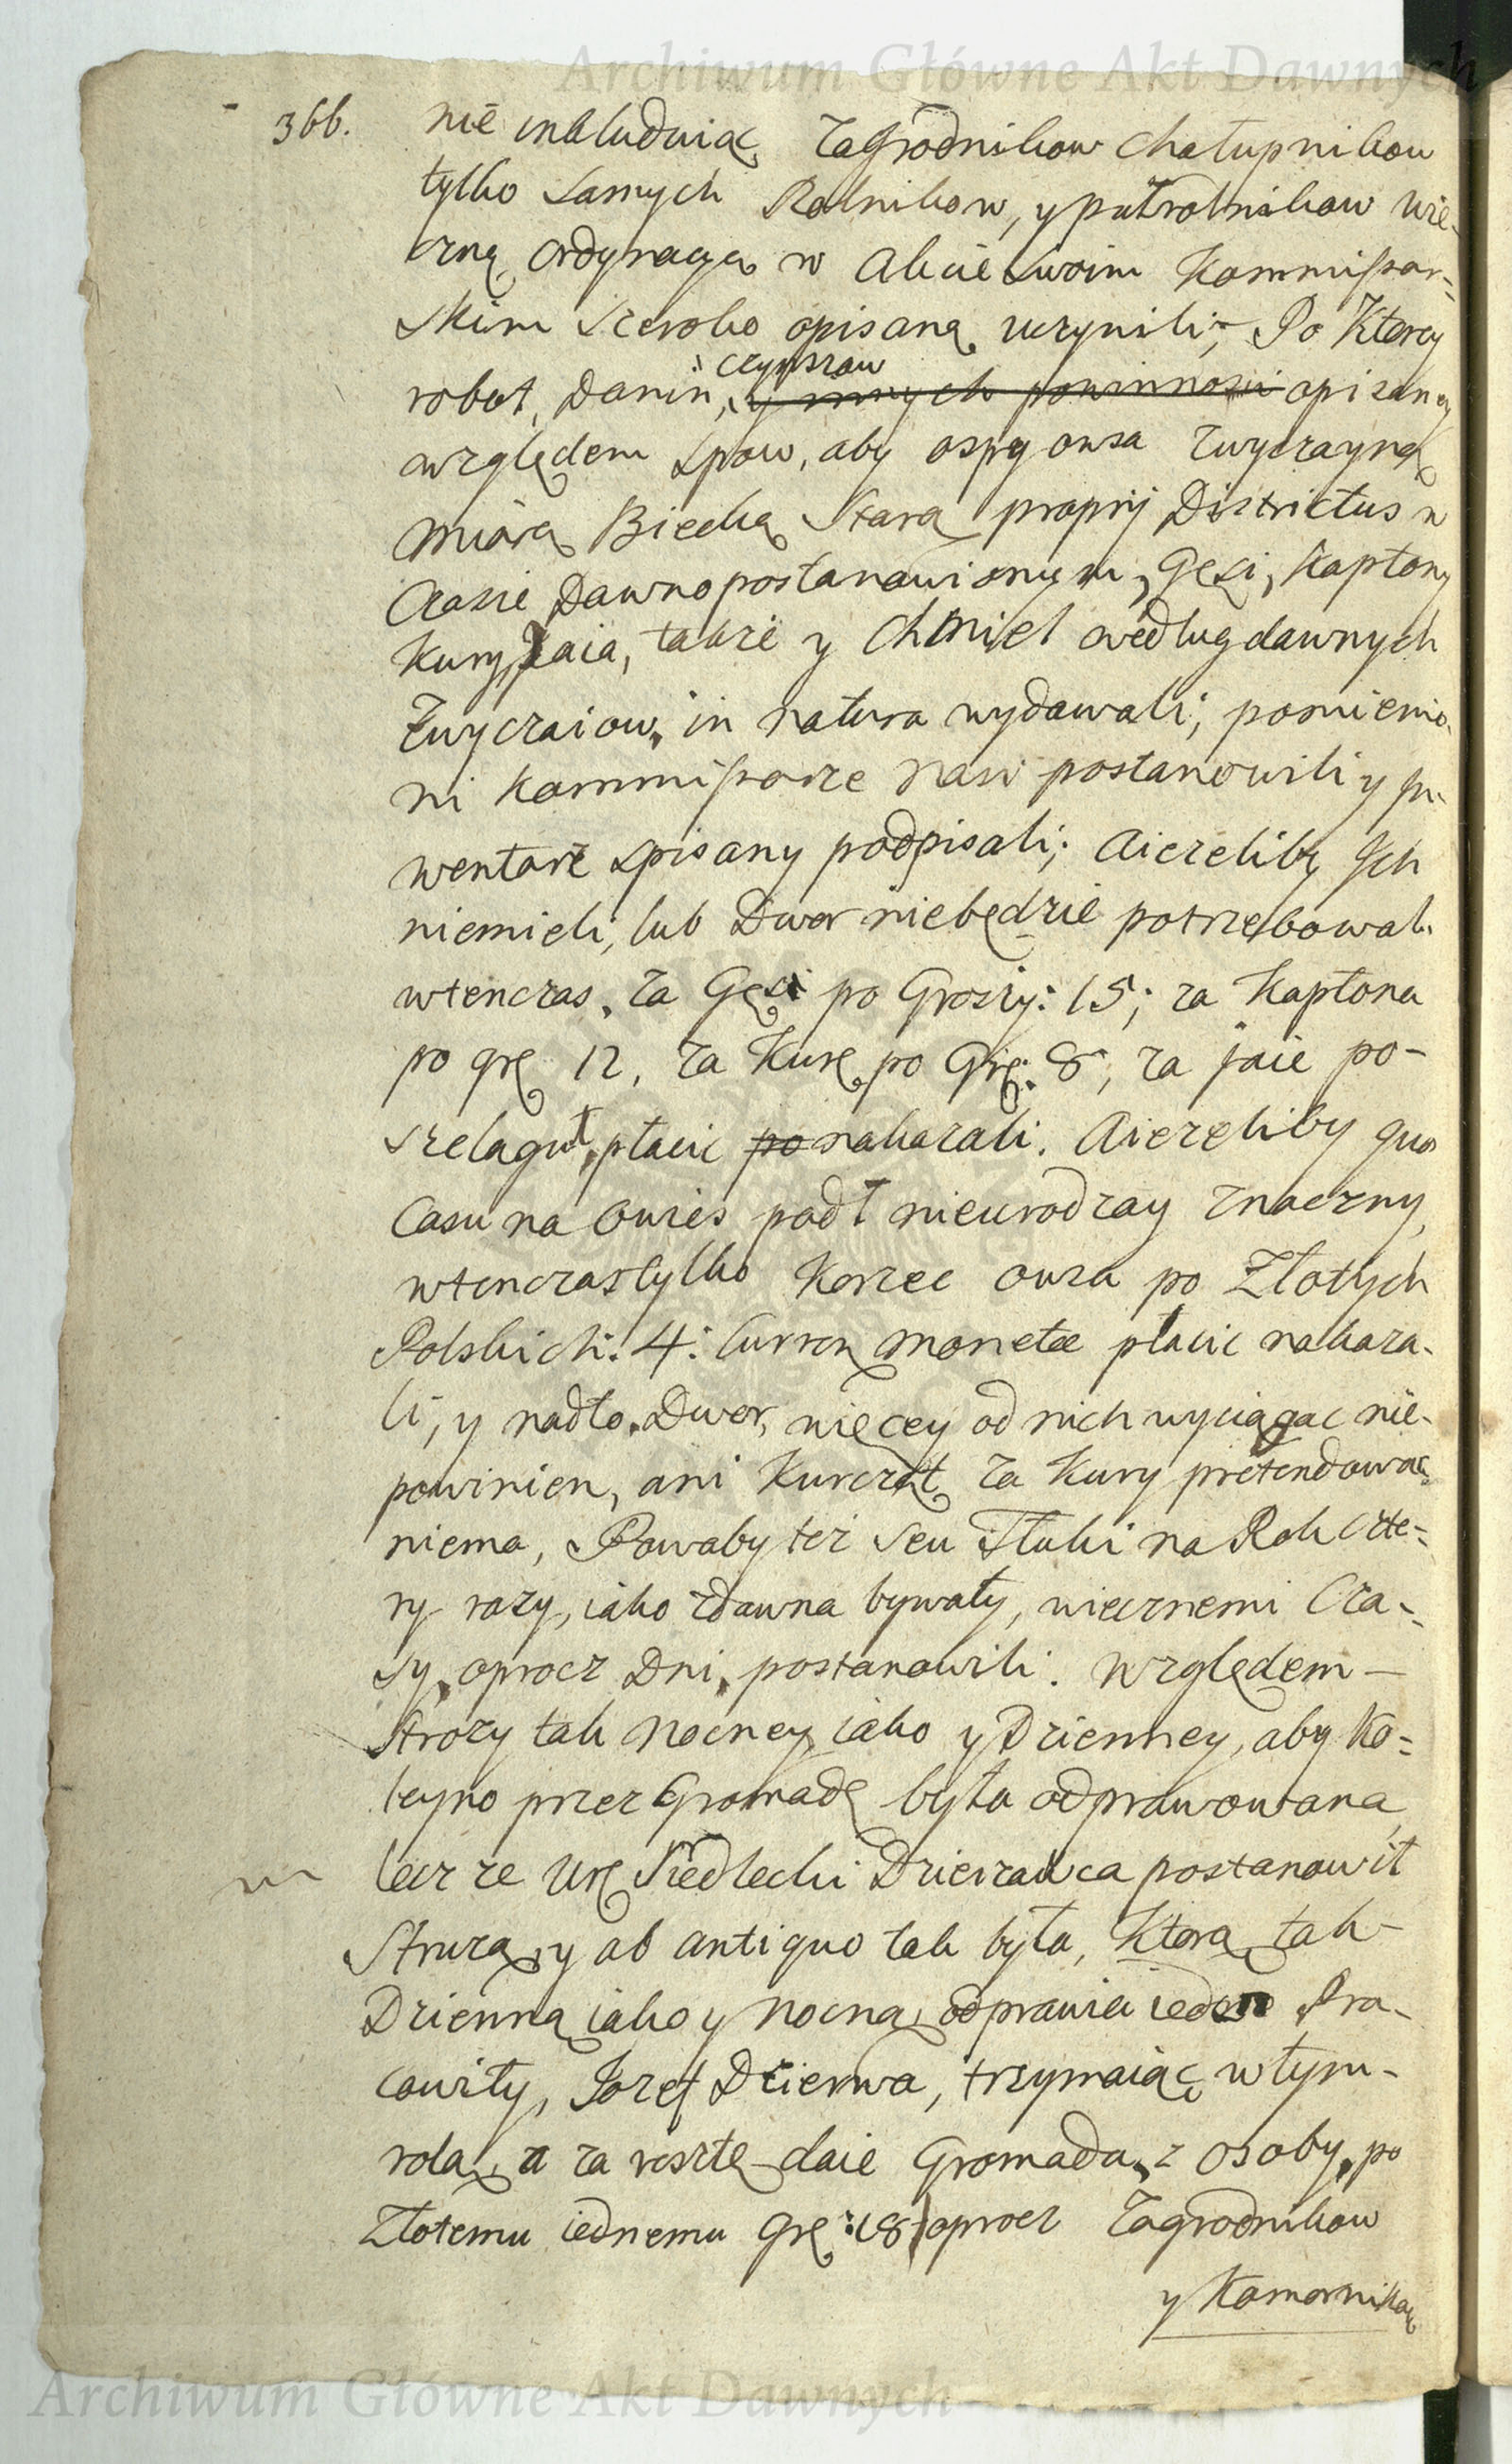 Archiwum Główne Akt Dawnych
366. nie inkluduiąc Zagrodnikow Chałupnikow
tylko samych Rolnikow, y pułrolnikow wie-
czną Ordynacyą w Akcie swoim Kommissar-
skim szeroko opisaną uczynili; Po Ktorey
czynszow
robot, Danin, y innych powinnosci opisaney
względem spow, aby ospy owsa zwyczayną
Miarą Biecką Starą proprij Districtus w
Czasie Dawno postanowionym, Gęsi, Kapłony
Kury, Jaia, takze y Chmiel według dawnych
Zwyczaiow, in natura wydawali; pomienio-
ni Kommissarze nasi postanowili y In-
wentarz spisany podpisali; A iezeliby Ich
niemieli, lub Dwor niebędzie potrzebował
wtenczas, za Gęsi po Groszy: 15; za Kapłona
po gr 12, za Kurę po Gr: 8, za jaie po-
szelągu, płacic po nakazali. A iezeliby quo
Casu na Owies padł nieurodzay znaczny,
wtenczas tylko Korzec owsa po Złotych
Polskich: 4: Curren monetæ płacic nakaza-
li, y nadto Dwor, więcey od nich wyciągac nie-
powinien, ani Kurcząt za Kury pretendowac
niema, Powaby też seu Tłuki na Rok czte-
ry razy, iako zdawna bywały, wiecznemi Cza-
sy, oprocz Dni, postanowili. Względem
Strozy tak Nocney, iako y Dzienney, aby Ko-
leyno przez Gromadę była odprawowana,
lecz ze Ur Siedlecki Dzierzawca postanowił
Struzą, y ab antiquo tak była, Ktorą tak
Dzienną iako y Nocną, odprawia ieden Pra-
cowity, Jozef Dzierwa, trzymaiąc w tym
rolą, a za resztę daie Gromada, z osoby, po
Złotemu iednemu Gr: 18 oprocz Zagrodnikow
y Komornikow
Archiwum Główne Akt Dawnych